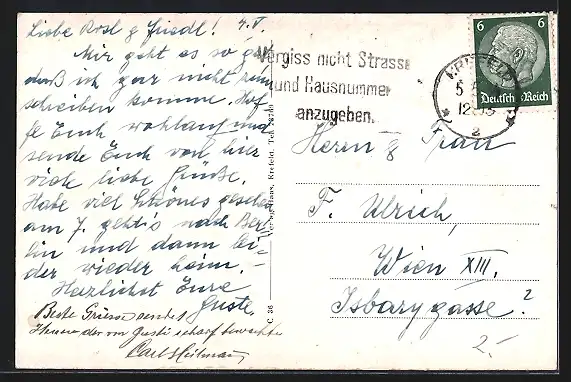 Liebe Rosl & Friedl! 4. V.
Mir geht es so gut
daß ich gar nicht zum
schreiben komme. Hof-
fe Euch wohlauf und
sende Euch von hier
viele liebe Grüße.
Habe viel Schönes gesehen
am 7. geht's nach Ber-
lin und dann lei-
der wieder heim. –
Herzlichst Eure
Guste.
Beste Grüsse sendet
Ihnen der von Gusti scharf bewachte
Carl
Vergiss nicht Strasse
und Hausnummer
anzugeben.
KREFELD
5.
12
a
6 6
Deutsches Reich
Verlag Haas, Krefeld, Tel.
C 36
Herrn & Frau
F. Ulrich,
Wien XIII.
Isbarygasse?
2.-